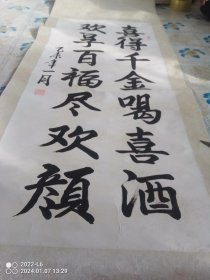 喜得千金喝喜酒
欢享百福尽欢颜
2022-L6
2024.01.07 13:29